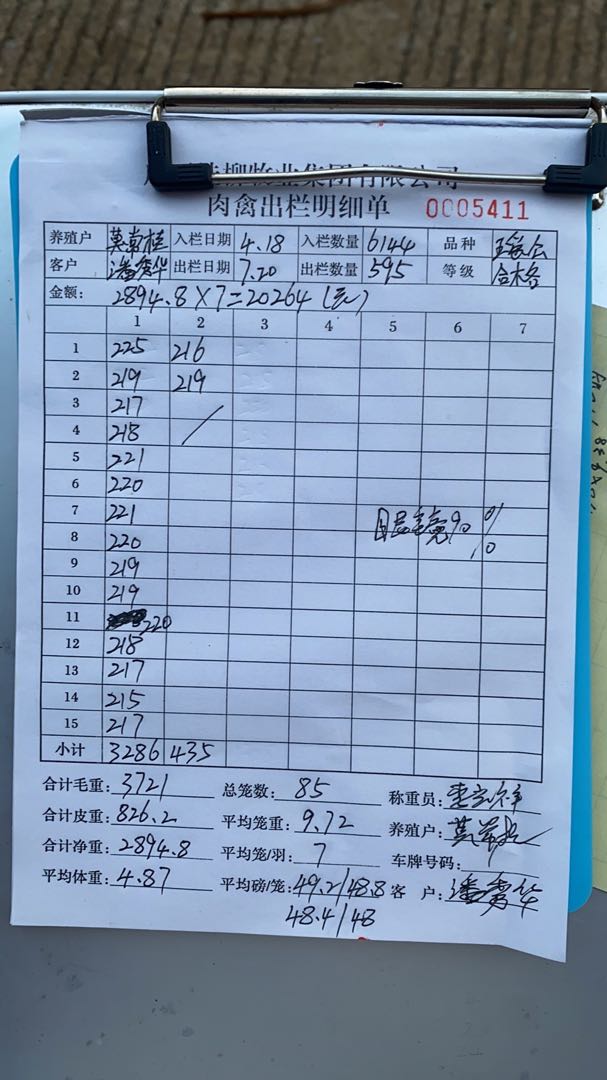 柳牧业集团有限公司
肉禽出栏明细单 0005411
养殖户 莫常桂 入栏日期 4.18 入栏数量 6144 品种
客户 潘秀华 出栏日期 7.20 出栏数量 595 等级 合格
金额: 2894.8×7=20264(元)
1 2 3 4 5 6 7
1 225 216
2 219 219
3 217
4 218 /
5 221
6 220
7 221
8 220
9 219
10 219
11 220
12 218
13 217
14 215
15 217
小计 3286 435
合计毛重: 3721 总笼数: 85 称重员:
合计皮重: 826.2 平均笼重: 9.72 养殖户:
合计净重: 2894.8 平均笼/羽: 7 车牌号码:
平均体重: 4.87 平均磅/笼: 49.2/48.8 客户: 潘秀华
48.4/48